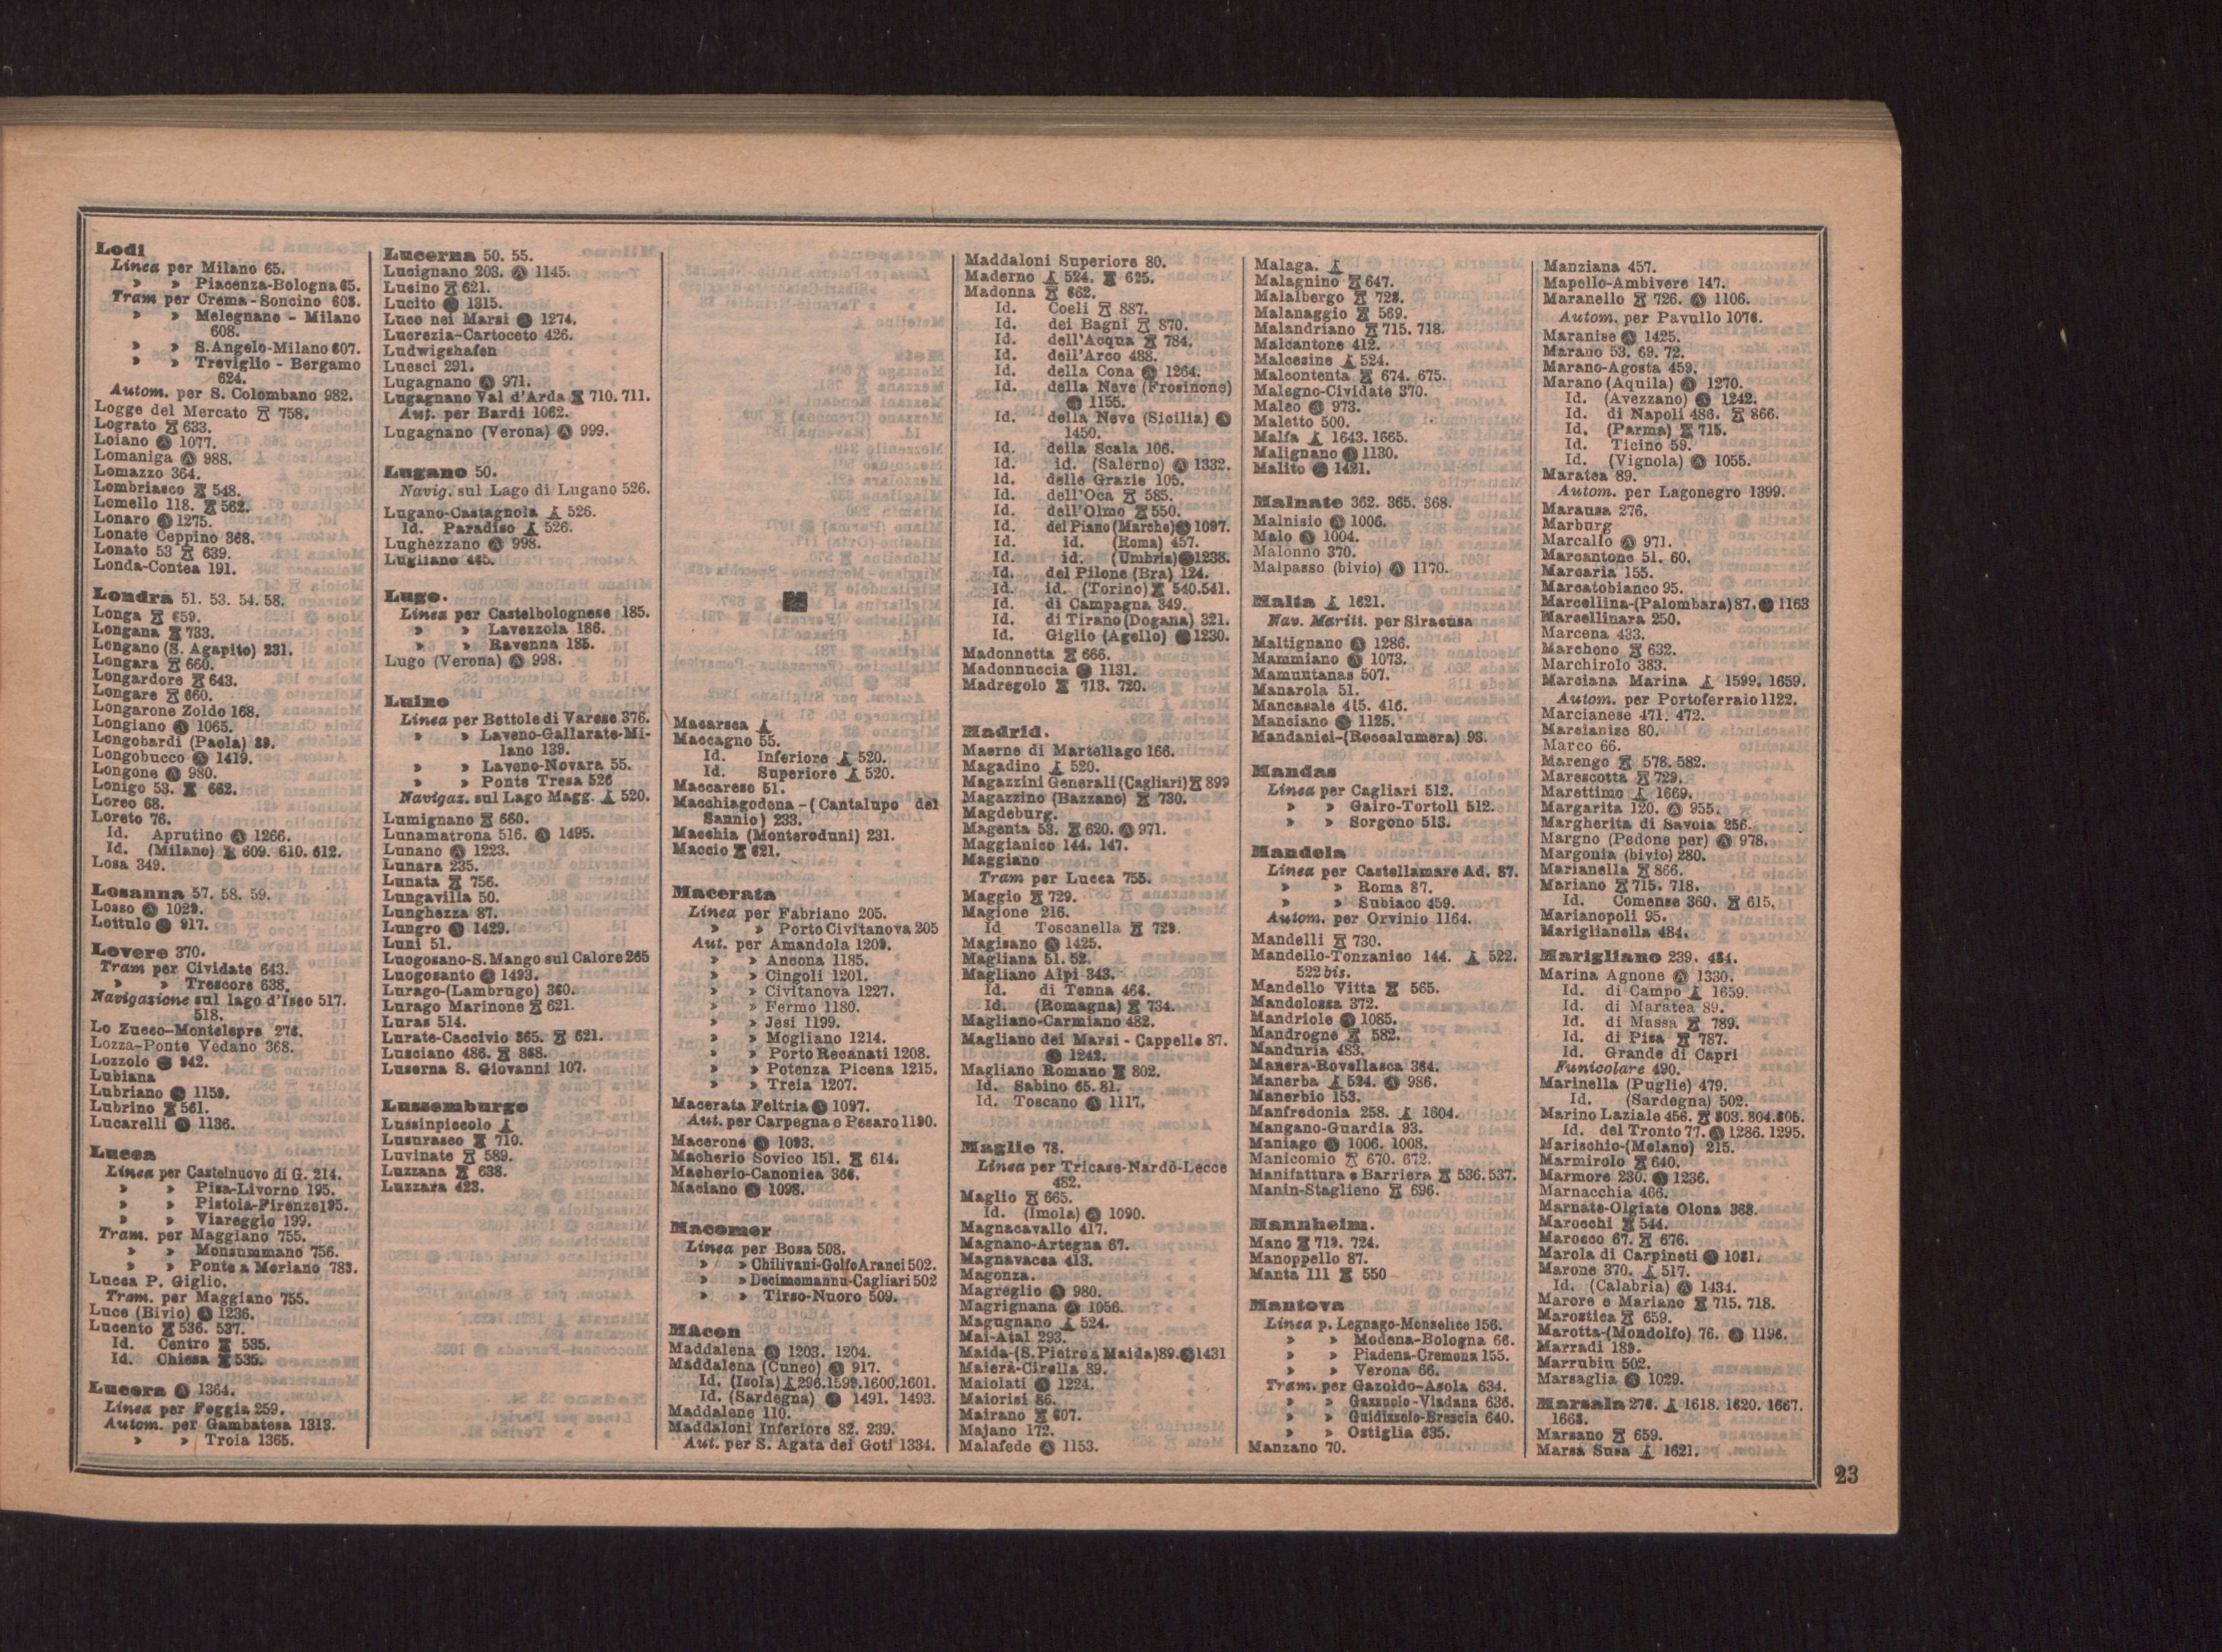 Lodi
Linea per Milano 65.
» » Piacenza-Bologna 65.
Tram per Crema-Soncino 603.
» » Melegnano - Milano
608.
» » S. Angelo-Milano 607.
» » Treviglio - Bergamo
624.
Autom. per S. Colombano 982.
Logge del Mercato 758.
Lograto 633.
Loiano Ⓐ 1077.
Lomaniga Ⓐ 988.
Lomazzo 364.
Lombriasco 548.
Lomello 118. 562.
Lonaro Ⓐ 1275.
Lonate Ceppino 368.
Lonato 53 639.
Londa-Contea 191.
Londra 51. 53. 54. 58.
Longa 659.
Longana 733.
Longano (S. Agapito) 231.
Longara 660.
Longardore 643.
Longare 660.
Longarone Zoldo 168.
Longiano Ⓐ 1065.
Longobardi (Paola) 89.
Longobucco Ⓐ 1419.
Longone Ⓐ 980.
Lonigo 53. 662.
Loreo 68.
Loreto 76.
Id. Aprutino Ⓐ 1266.
Id. (Milano) 609. 610. 612.
Losa 349.
Losanna 57. 58. 59.
Losso Ⓐ 1029.
Lottulo Ⓐ 917.
Lovere 370.
Tram per Cividate 643.
» » Trescore 638.
Navigazione sul lago d'Iseo 517.
518.
Lo Zucco-Montelepre 276.
Lozza-Ponte Vedano 368.
Lozzolo Ⓐ 942.
Lubiana
Lubriano Ⓐ 1159.
Lubrino 561.
Lucarelli Ⓐ 1136.
Lucca
Linea per Castelnuovo di G. 214.
» » Pisa-Livorno 195.
» » Pistoia-Firenze 195.
» » Viareggio 199.
Tram. per Maggiano 755.
» » Monsummano 756.
» » Ponte a Moriano 783.
Lucca P. Giglio.
Tram. per Maggiano 755.
Luce (Bivio) Ⓐ 1236.
Lucento 536. 537.
Id. Centro 535.
Id. Chiesa 535.
Lucera Ⓐ 1364.
Linea per Foggia 259.
Autom. per Gambatesa 1313.
» » Troia 1365.
Lucerna 50. 55.
Lucignano 203. Ⓐ 1145.
Lucino 621.
Lucito Ⓐ 1315.
Luco nei Marsi Ⓐ 1274.
Lucrezia-Cartoceto 426.
Ludwigshafen
Luesci 291.
Lugagnano Ⓐ 971.
Lugagnano Val d'Arda 710. 711.
Aut. per Bardi 1062.
Lugagnano (Verona) Ⓐ 999.
Lugano 50.
Navig. sul Lago di Lugano 526.
Lugano-Castagnola 526.
Id. Paradiso 526.
Lughezzano Ⓐ 998.
Lugliano 465.
Lugo.
Linea per Castelbolognese 185.
» » Lavezzola 186.
» » Ravenna 185.
Lugo (Verona) Ⓐ 998.
Luino
Linea per Bettole di Varese 376.
» » Laveno-Gallarate-Mi-
lano 139.
» » Laveno-Novara 55.
» » Ponte Tresa 526
Navigaz. sul Lago Magg. 520.
Lumignano 660.
Lunamatrona 516. Ⓐ 1495.
Lunano Ⓐ 1223.
Lunara 235.
Lunata 756.
Lungavilla 50.
Lunghezza 87.
Lungro Ⓐ 1429.
Luni 51.
Luogosano-S. Mango sul Calore 265
Luogosanto Ⓐ 1493.
Lurago-(Lambrugo) 360.
Lurago Marinone 621.
Luras 514.
Lurate-Caccivio 365. 621.
Lusciano 486. 868.
Luserna S. Giovanni 107.
Lussemburgo
Lussinpiccolo
Lusurasco 710.
Luvinate 589.
Luzzana 638.
Luzzara 423.
M
Macarsca
Maccagno 55.
Id. Inferiore 520.
Id. Superiore 520.
Maccarese 51.
Macchiagodena - (Cantalupo del
Sannio) 233.
Macchia (Monteroduni) 231.
Maccio 621.
Macerata
Linea per Fabriano 205.
» » Porto Civitanova 205
Aut. per Amandola 1209.
» » Ancona 1185.
» » Cingoli 1201.
» » Civitanova 1227.
» » Fermo 1180.
» » Jesi 1199.
» » Mogliano 1214.
» » Porto Recanati 1208.
» » Potenza Picena 1215.
» » Treia 1207.
Macerata Feltria Ⓐ 1097.
Aut. per Carpegna e Pesaro 1190.
Macerone Ⓐ 1093.
Macherio Sovico 151. 614.
Macherio-Canonica 366.
Maciano Ⓐ 1098.
Macomer
Linea per Bosa 508.
» » Chilivani-Golfo Aranci 502.
» » Decimomannu-Cagliari 502
» » Tirso-Nuoro 509.
Mâcon
Maddalena Ⓐ 1203. 1204.
Maddalena (Cuneo) Ⓐ 917.
Id. (Isola) 296. 1599. 1600. 1601.
Id. (Sardegna) Ⓐ 1491. 1493.
Maddalene 110.
Maddaloni Inferiore 82. 239.
Aut. per S. Agata dei Goti 1334.
Maddaloni Superiore 80.
Maderno 524. 625.
Madonna 662.
Id. Coeli 887.
Id. dei Bagni 870.
Id. dell'Acqua 784.
Id. dell'Arco 488.
Id. della Cona Ⓐ 1264.
Id. della Neve (Frosinone)
Ⓐ 1155.
Id. della Neve (Sicilia) Ⓐ
1450.
Id. della Scala 106.
Id. id. (Salerno) Ⓐ 1332.
Id. delle Grazie 105.
Id. dell'Oca 585.
Id. dell'Olmo 550.
Id. del Piano (Marche) Ⓐ 1097.
Id. id. (Roma) 457.
Id. id. (Umbria) Ⓐ 1238.
Id. del Pilone (Bra) 124.
Id. id. (Torino) 540. 541.
Id. di Campagna 349.
Id. di Tirano (Dogana) 321.
Id. Giglio (Agello) Ⓐ 1230.
Madonnetta 666.
Madonnuccia Ⓐ 1131.
Madregolo 713. 720.
Madrid.
Maerne di Martellago 166.
Magadino 520.
Magazzini Generali (Cagliari) 899
Magazzino (Bazzano) 730.
Magdeburg.
Magenta 53. 620. Ⓐ 971.
Maggianico 144. 147.
Maggiano
Tram per Lucca 755.
Maggio 729.
Magione 216.
Id Toscanella 729.
Magisano Ⓐ 1425.
Magliana 51. 52.
Magliano Alpi 343.
Id. di Tenna 466.
Id. (Romagna) 734.
Magliano-Carmiano 482.
Magliano dei Marsi - Cappelle 87.
Ⓐ 1242.
Magliano Romano 802.
Id. Sabino 65. 81.
Id. Toscano Ⓐ 1117.
Maglie 78.
Linea per Tricase-Nardò-Lecce
482.
Maglio 665.
Id. (Imola) Ⓐ 1090.
Magnacavallo 417.
Magnano-Artegna 67.
Magnavacca 413.
Magonza.
Magreglio Ⓐ 980.
Magrignana Ⓐ 1056.
Magugnano 524.
Mai-Atal 293.
Maida-(S. Pietro a Maida) 89. Ⓐ 1431
Maierà-Cirella 89.
Maiolati Ⓐ 1224.
Maiorisi 86.
Mairano 607.
Majano 172.
Malafede Ⓐ 1153.
Malaga.
Malagnino 647.
Malalbergo 728.
Malanaggio 569.
Malandriano 715. 718.
Malcantone 412.
Malcesine 524.
Malcontenta 674. 675.
Malegno-Cividate 370.
Maleo Ⓐ 973.
Maletto 500.
Malfa 1643. 1665.
Malignano Ⓐ 1130.
Malito Ⓐ 1421.
Malnate 362. 365. 368.
Malnisio Ⓐ 1006.
Malo Ⓐ 1004.
Malonno 370.
Malpasso (bivio) Ⓐ 1170.
Malta 1621.
Nav. Maritt. per Siracusa
Maltignano Ⓐ 1286.
Mammiano Ⓐ 1073.
Mamuntanas 507.
Manarola 51.
Mancasale 415. 416.
Manciano Ⓐ 1125.
Mandanici-(Roccalumera) 93.
Mandas
Linea per Cagliari 512.
» » Gairo-Tortolì 512.
» » Sorgono 513.
Mandela
Linea per Castellamare Ad. 87.
» » Roma 87.
» » Subiaco 459.
Autom. per Orvinio 1164.
Mandelli 730.
Mandello-Tonzanico 144. 522.
522 bis.
Mandello Vitta 565.
Mandolossa 372.
Mandriole Ⓐ 1085.
Mandrogne 582.
Manduria 483.
Manera-Rovellasca 364.
Manerba 524. Ⓐ 986.
Manerbio 153.
Manfredonia 258. 1604.
Mangano-Guardia 93.
Maniago Ⓐ 1006. 1008.
Manicomio 670. 672.
Manifattura e Barriera 536. 537.
Manin-Staglieno 696.
Mannheim.
Mano 719. 724.
Manoppello 87.
Manta 111 550
Mantova
Linea p. Legnago-Monselice 156.
» » Modena-Bologna 66.
» » Piadena-Cremona 155.
» » Verona 66.
Tram. per Gazoldo-Asola 634.
» » Gazzuolo-Viadana 636.
» » Guidizzolo-Brescia 640.
» » Ostiglia 635.
Manzano 70.
Manziana 457.
Mapello-Ambivere 147.
Maranello 726. Ⓐ 1106.
Autom. per Pavullo 1076.
Maranise Ⓐ 1425.
Marano 53. 69. 72.
Marano-Agosta 459.
Marano (Aquila) Ⓐ 1270.
Id. (Avezzano) Ⓐ 1242.
Id. di Napoli 486. 866.
Id. (Parma) 715.
Id. Ticino 59.
Id. (Vignola) Ⓐ 1055.
Maratea 89.
Autom. per Lagonegro 1399.
Marausa 276.
Marburg
Marcallo Ⓐ 971.
Marcantone 51. 60.
Marcaria 155.
Marcatobianco 95.
Marcellina-(Palombara) 87. Ⓐ 1163
Marcellinara 250.
Marcena 433.
Marcheno 632.
Marchirolo 383.
Marciana Marina 1599. 1659.
Autom. per Portoferraio 1122.
Marcianese 471. 472.
Marcianise 80.
Marco 66.
Marengo 578. 582.
Marescotta 729.
Marettimo 1669.
Margarita 120. Ⓐ 955.
Margherita di Savoia 256.
Margno (Pedone per) Ⓐ 978.
Margonia (bivio) 280.
Marianella 866.
Mariano 715. 718.
Id. Comense 360. 615.
Marianopoli 95.
Mariglianella 484.
Marigliano 239. 484.
Marina Agnone Ⓐ 1330.
Id. di Campo 1659.
Id. di Maratea 89.
Id. di Massa 789.
Id. di Pisa 787.
Id. Grande di Capri
Funicolare 490.
Marinella (Puglie) 479.
Id. (Sardegna) 502.
Marino Laziale 456. 803. 804. 805.
Id. del Tronto 77. Ⓐ 1286. 1295.
Marischio-(Melano) 215.
Marmirolo 640.
Marmore 230. Ⓐ 1236.
Marnacchia 466.
Marnate-Olgiate Olona 368.
Marocchi 544.
Marocco 67. 676.
Marola di Carpineti Ⓐ 1081.
Marone 370. 517.
Id. (Calabria) Ⓐ 1434.
Marore e Mariano 715. 718.
Marostica 659.
Marotta-(Mondolfo) 76. Ⓐ 1196.
Marradi 189.
Marrubiu 502.
Marsaglia Ⓐ 1029.
Marsala 276. 1618. 1620. 1667.
1668.
Marsano 659.
Marsa Susa 1621.
23